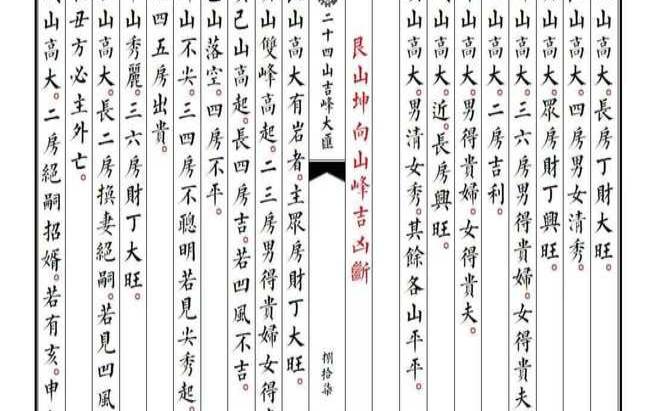 山高大。長房丁財大旺。
山高大。四房男女清秀。
山高大。眾房財丁興旺。
山高大。三六房男得貴婦。女得貴夫
山高大。二房吉利。
山高大。男得貴婦。女得貴夫。
山高大。近。長房興旺。
山高大。男清女秀。其餘各山平平。
艮山坤向山峰吉凶斷
二十四山吉峰大匯
捌拾柒
山高大有岩者。主眾房財丁大旺。
山雙峰高起。二三房男得貴婦女得
己山高起。長四房吉。若凹風不吉。
山落空。四房不平。
山不尖。三四房不聰明若見尖秀起。
四五房出貴。
山秀麗。三六房財丁大旺。
山高大。長二房損妻絕嗣。若見凹風
丑方必主外亡。
山高大。二房絕嗣招婿。若有亥。申